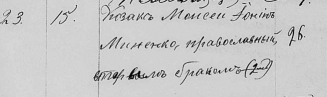 23. 15. Козакъ Моисей Іоновъ
Миненко, православный, 26.
вторымъ бракомъ (2-й)